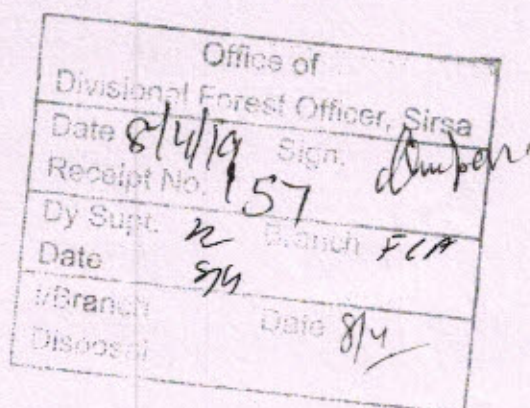 Office of
Divisional Forest Officer, Sirsa
Date 8/4/19 Sign.
Receipt No. 157
Dy Supt. Branch FCA
Date 8/4
I/Branch Date 8/4
Disposal